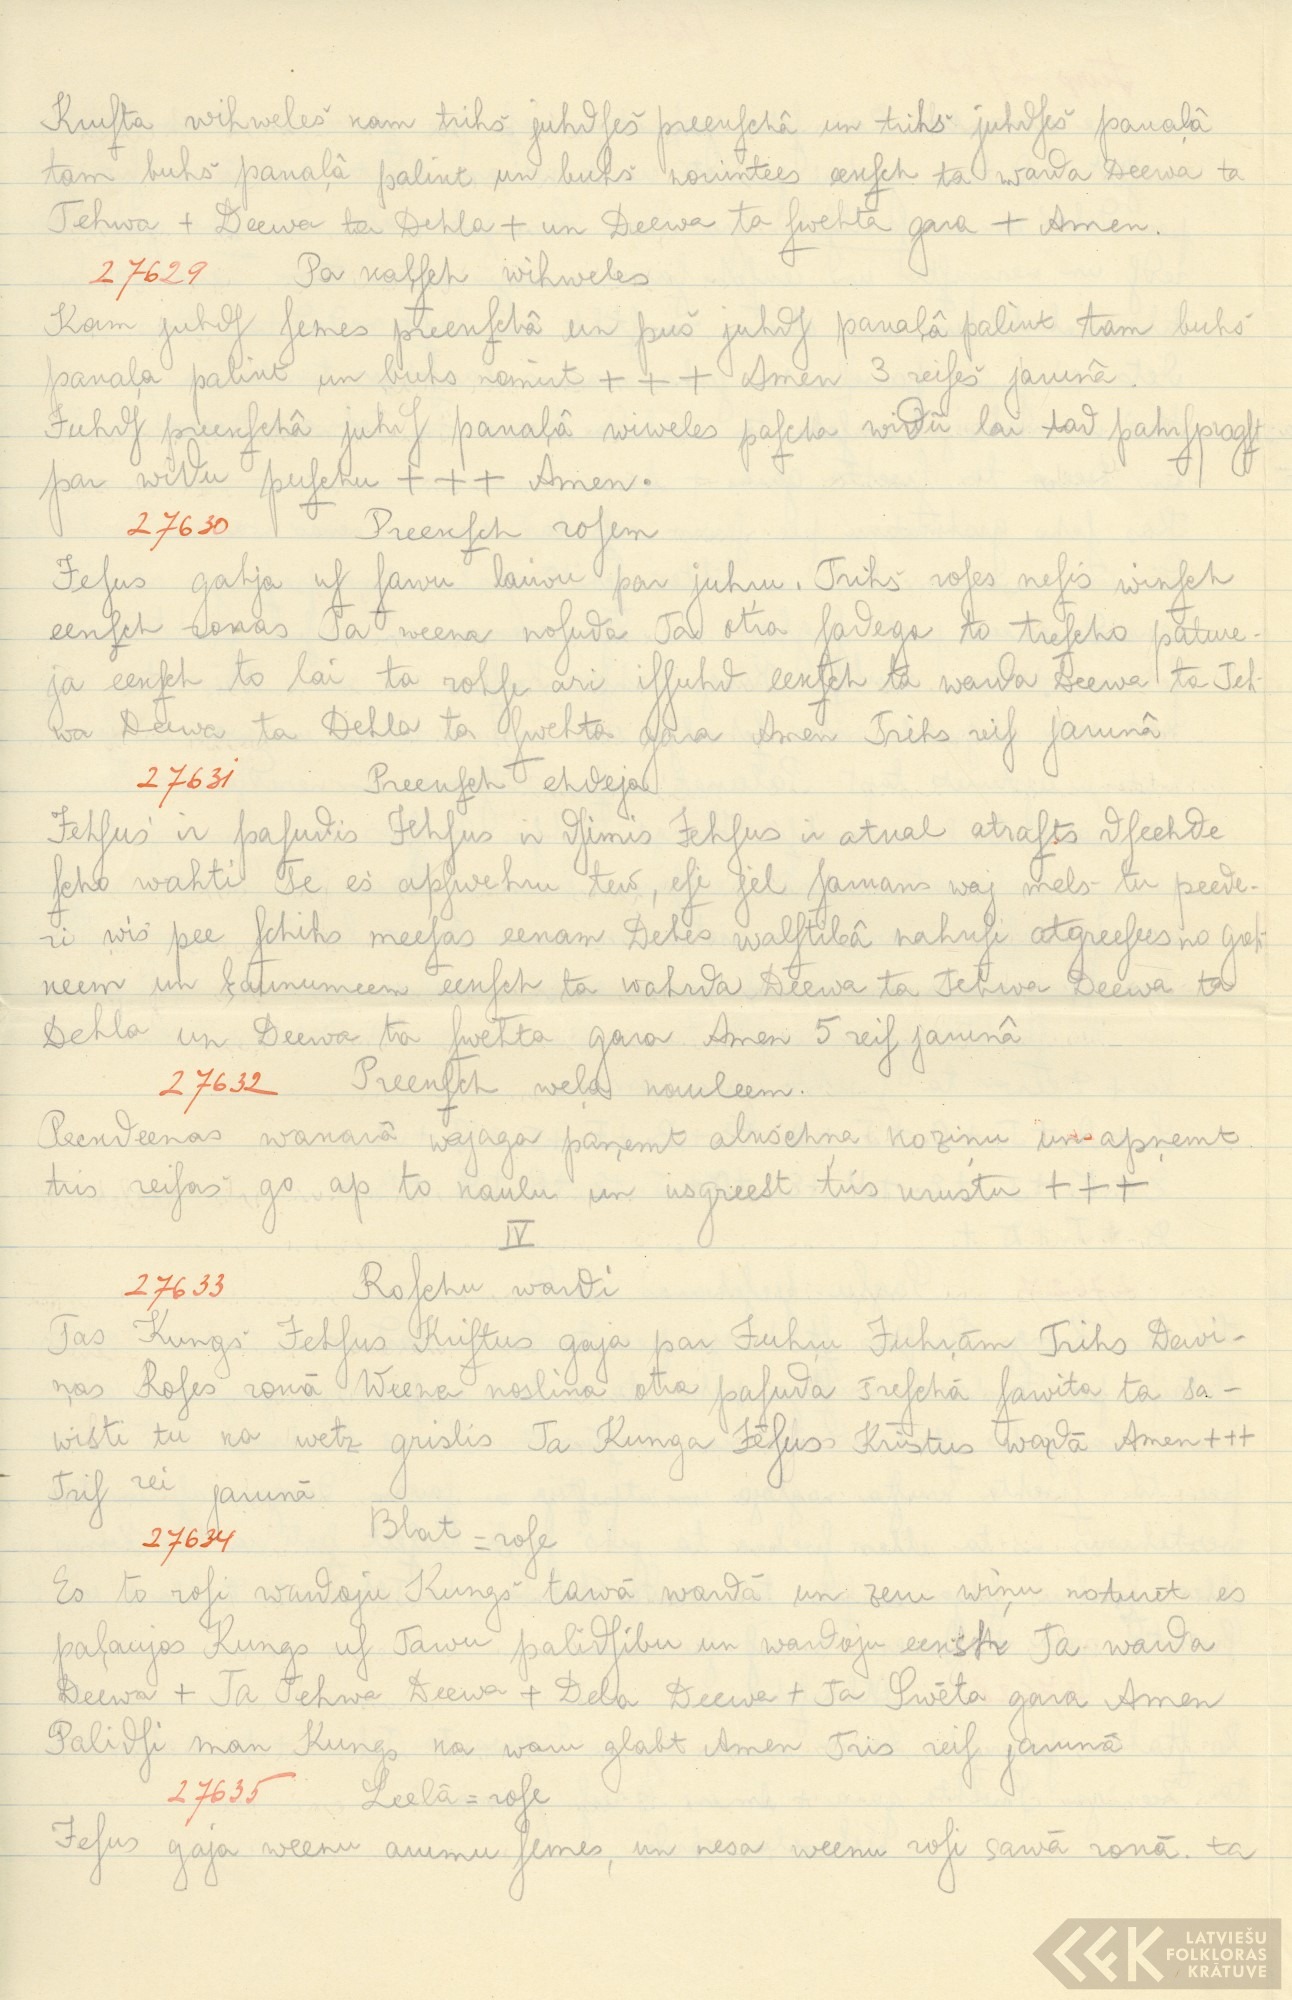 Krusta wihweleš kam trihš juhdſeš preenſchâ un trihš juhdſeš pakaļâ
tam buhš pakaļâ palikt un buhš nomirtees eekſch ta warda Deewa ta
Tehwa + Deewa ta Dehla + un Deewa ta ſwehta gara + Amen.
27629 Pa kalſch wihweles
Kam juhdſ ſemes preekſchâ un puš juhdſ pakaļâ palikt tam buhš
pakaļa palikt un buhs nomirt + + + Amen 3 reiſeš jarunâ.
Juhdſ preekſchâ juhdſ pakaļâ wiweles paſcha widū lai tad pahrſpragſt
par widu puſchu + + + Amen.
27630 Preekſch roſem
Jeſus gahja uſ ſawu laiwu par juhru. Trihš roſes neſis winſch
eekſch rokas Ta weena noſuda Ta otra ſadega to treſcho patwe-
ja eekſch to lai ta rohſe ari iſſuhd eekſch ta warda Deewa ta Teh-
wa Deewa ta Dehla ta ſwehta gara Amen Trihs reiſ jarunâ
27631 Preekſch ehdeja
Jehſus ir paſudis Jehſus ir dſimis Jehſus ir atkal atraſts dſeehde
ſcho wahti Te eš apſwehru tew, eſi ſel ſarkans waj mels tu peede-
ri wiš pee ſchihs meeſas eekam Debes walſtibâ nahkſi atgreeſees no grek-
keem un ļaunumeem eekſch ta wahrda Deewa ta Tehwa Deewa ta
Dehla un Deewa ta ſwehta gara Amen 5 reiſ jarunâ
27632 Preekſch weļa kauleem.
Peekdeenas wakarâ wajaga paņemt alkšchņa koziņu un apņemt
tris reiſaš go ap to kaulu un usgreest tris krustu + + +
IV
27633 Roſchu wardi
Tas Kungš Jehſus Kriſtus gaja par Juhru Juhŗām Trihs Dewi-
ņas Roſes rokā Weena noslika otra paſuda Treſchā ſawita ta sa-
wisti tu ka wetz grislis Ta Kunga Jēſus Kristus wardā Amen +++
Triſ rei jarunā
27634 Blat = roſe
Es to roſi wardoju Kungš tawā wardā un zeru wiņu noturēt es
paļaujos Kungs uſ Tawu palidſibu un wardoju eekšk Ta warda
Deewa + Ta Tehwa Deewa + Dela Deewa + Ta Swēta gara Amen
Palidſi man Kungs ka waru glabt Amen Tris reiſ jarunā
27635 Leelā = roſe
Jeſus gaja weenu arumu ſemes, un nesa weenu roſi sawā rokā. ta
LATVIEŠU
FOLKLORAS
KRĀTUVE